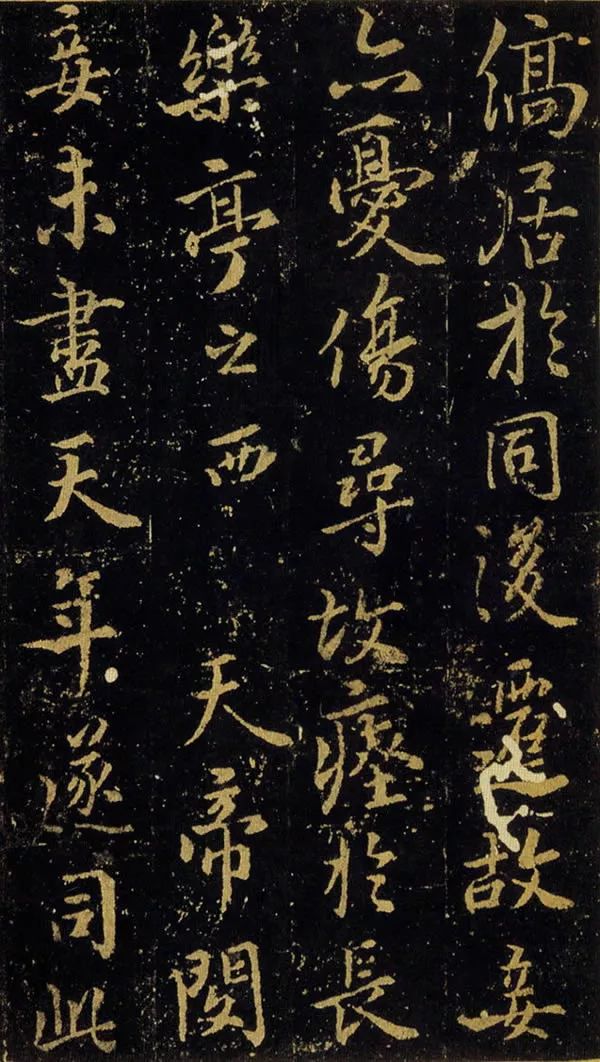 縞居於同後遷故妾
亦憂傷尋故瘞於長
樂亭之西 天帝閔
妾未盡天年遂司此